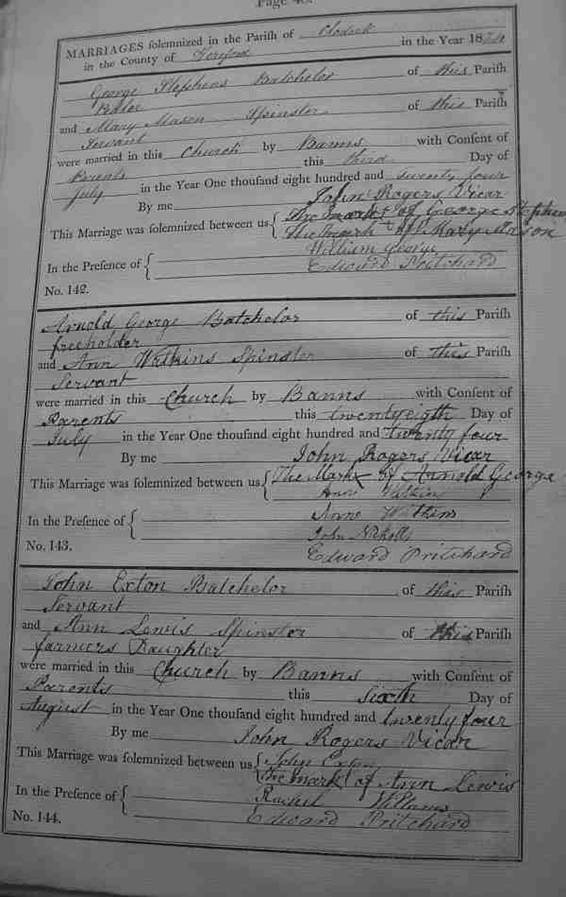 MARRIAGES solemnized in the Parish of Clodock
in the County of Hereford in the Year 1824
George Stephens Batchelor of this Parish
and Mary Mason Spinster of this Parish
Servant
were married in this Church by Banns with Consent of
Parents this third Day of
July in the Year One thousand eight hundred and twenty four
By me John Rogers Vicar
This Marriage was solemnized between us { The mark of George Stephens
The mark of Mary Mason
In the Presence of { William George
Edward Pritchard
No. 142.
Arnold George Batchelor of this Parish
freeholder
and Ann Watkins Spinster of this Parish
Servant
were married in this Church by Banns with Consent of
Parents this twentyeigth Day of
July in the Year One thousand eight hundred and twenty four
By me John Rogers Vicar
This Marriage was solemnized between us { The Mark of Arnold George
Anne Watkins
In the Presence of { Anne Watkins
John Nicholls
Edward Pritchard
No. 143.
John Exton Batchelor of this Parish
Servant
and Ann Lewis Spinster of this Parish
farmers Daughter
were married in this Church by Banns with Consent of
Parents this Sixth Day of
August in the Year One thousand eight hundred and twenty four
By me John Rogers Vicar
This Marriage was solemnized between us { John Exton
The mark of Ann Lewis
In the Presence of { Rachel Williams
Edward Pritchard
No. 144.